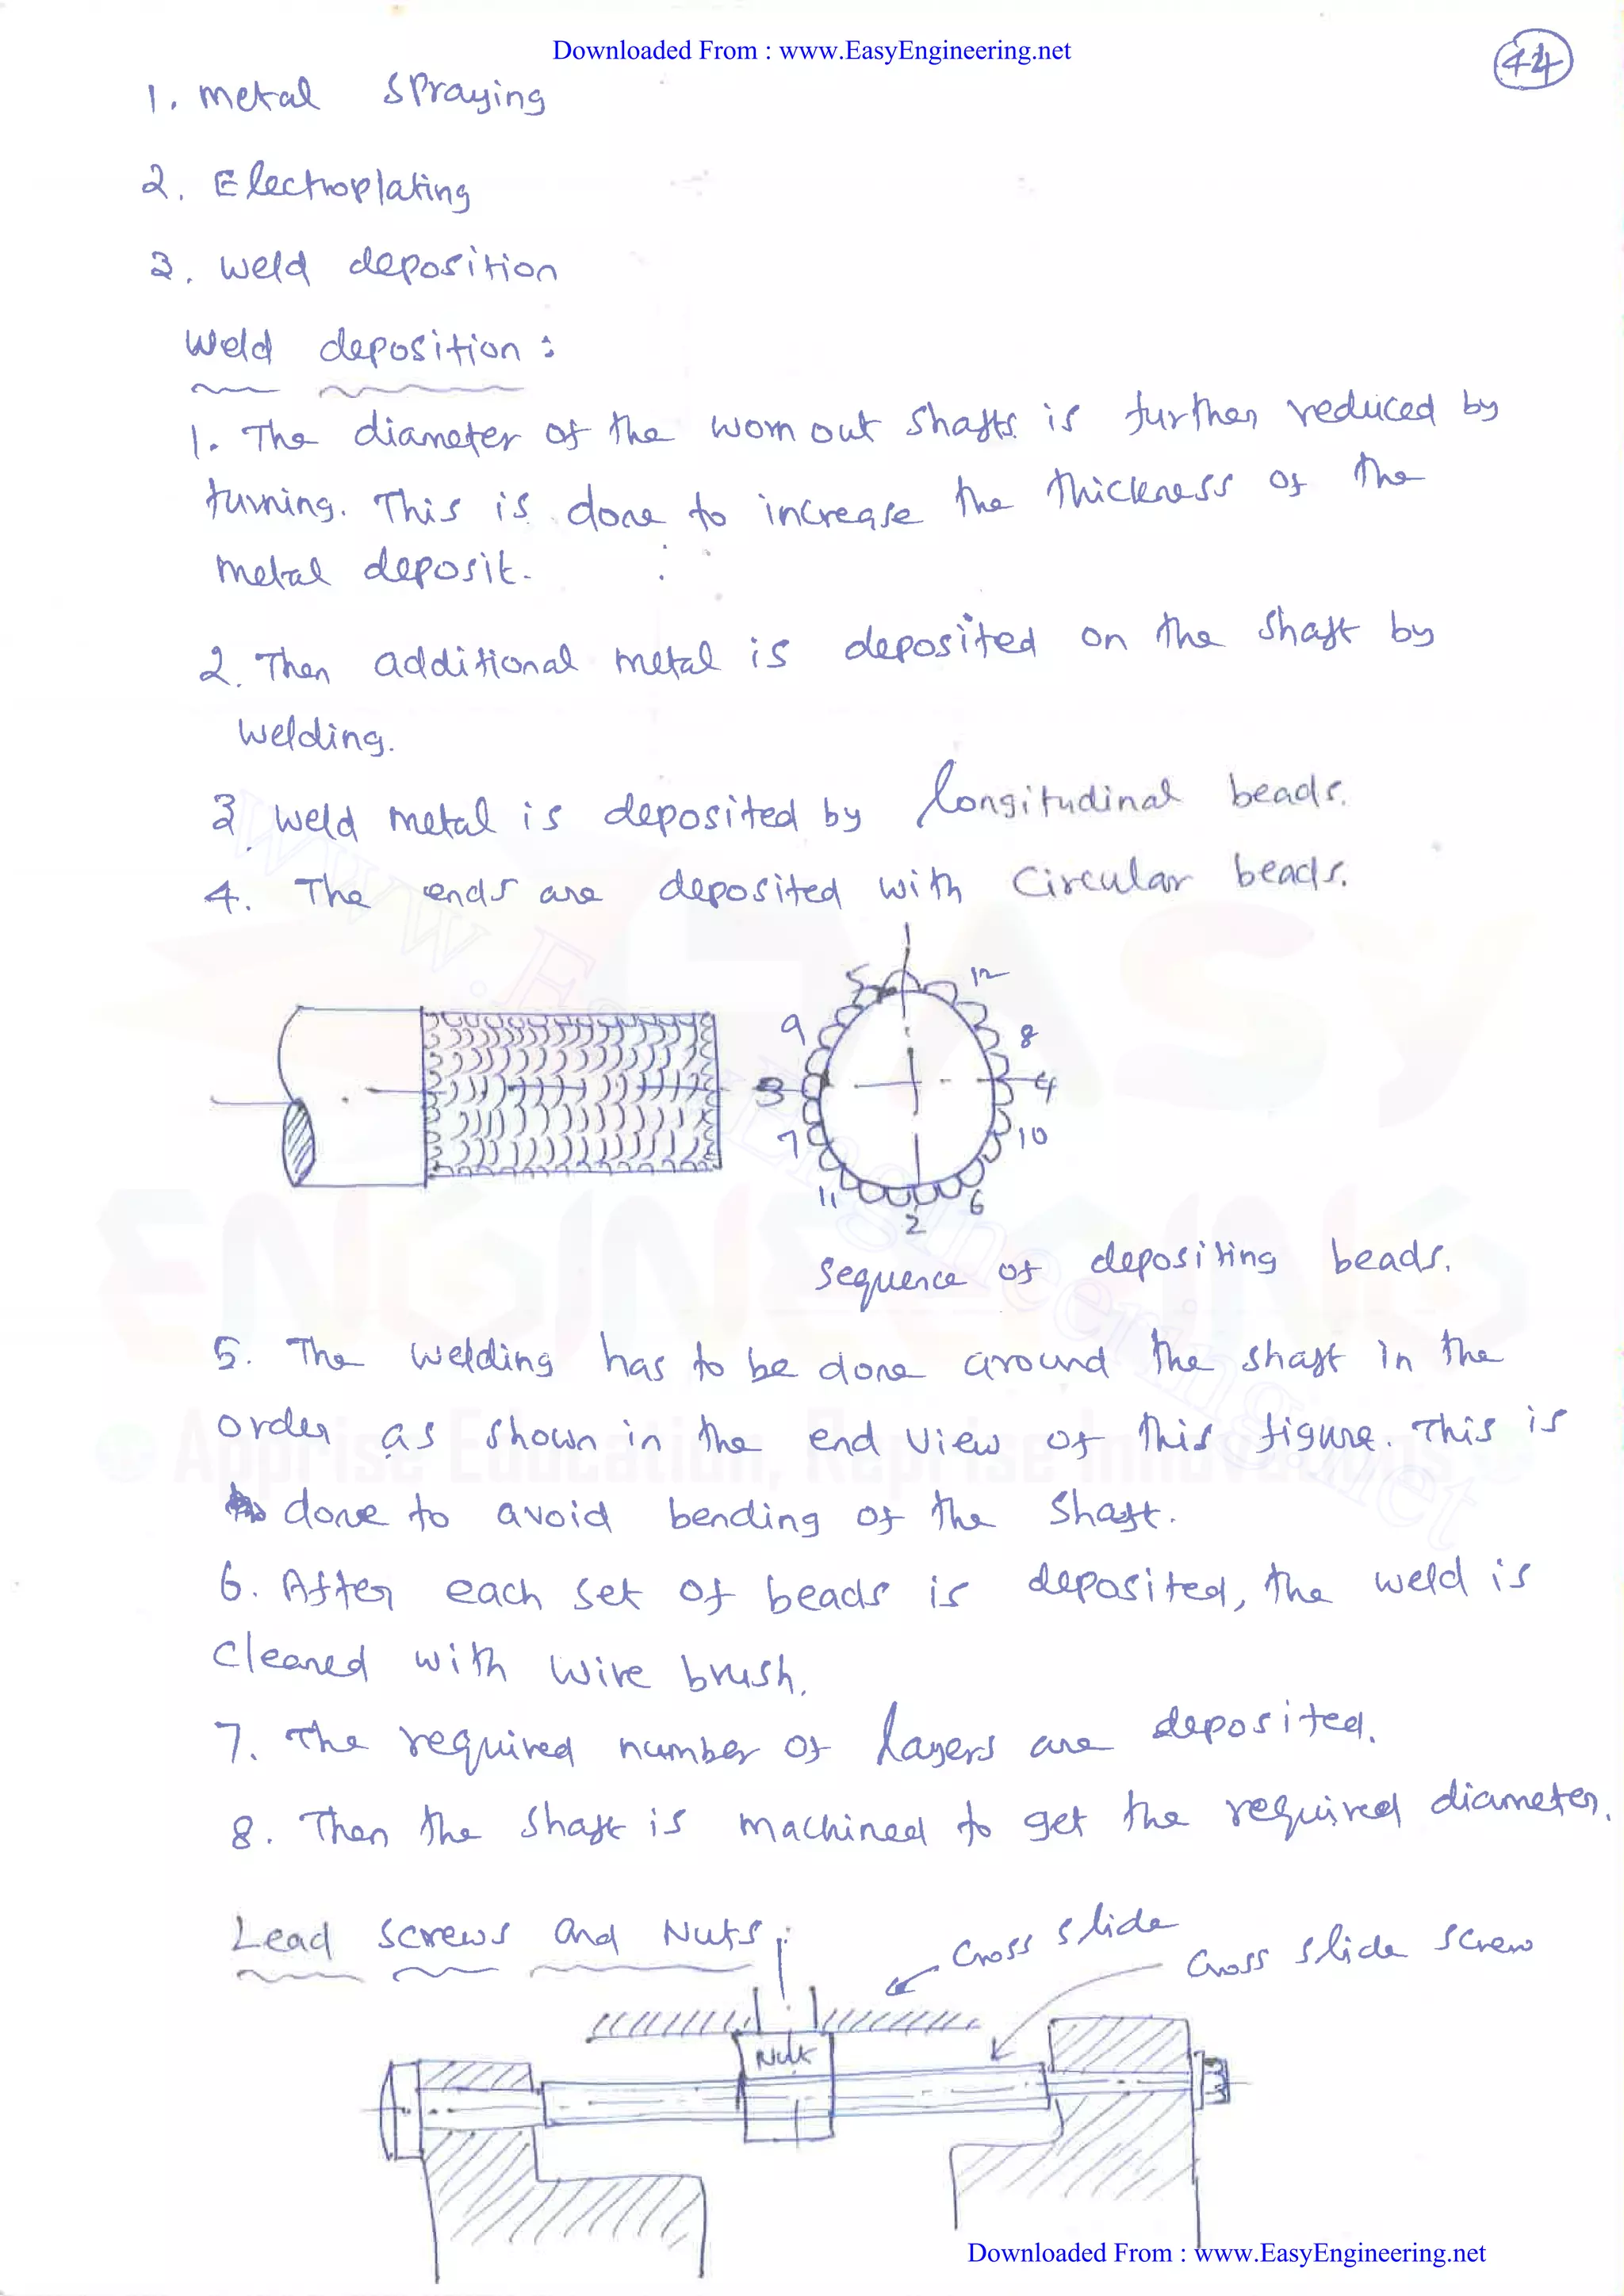 Downloaded From : www.EasyEngineering.net
44
1. Metal Spraying
2. Electroplating
3. Weld deposition
Weld deposition :
1. The diameter of the worn out shafts is further reduced by
turning. This is done to increase the thickness of the
metal deposit.
2. Then additional metal is deposited on the shaft by
welding.
3. Weld metal is deposited by longitudinal beads.
4. The ends are deposited with Circular beads.
5
12
9
8
3
4
7
10
11
6
2
Sequence of depositing beads.
5. The welding has to be done around the shaft in the
order as shown in the end view of this figure. This is
done to avoid bending of the shaft.
6. After each set of beads is deposited, the weld is
cleaned with wire brush.
7. The required number of layers are deposited.
8. Then the shaft is machined to get the required diameter.
Lead screws and Nuts :
Cross slide
Cross slide screw
Nut
Downloaded From : www.EasyEngineering.net
www.EasyEngineering.net
EASY
ENGINEERING
Apprise Education, Reprise Innovations